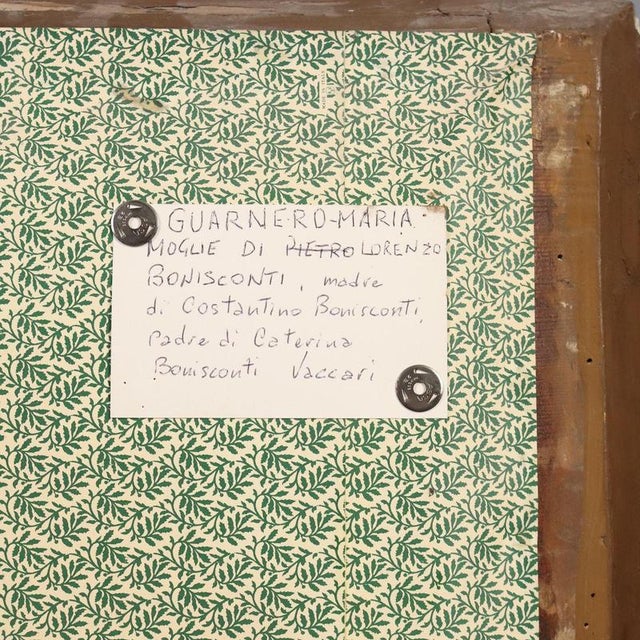 GUARNERO-MARIA
MOGLIE DI PIETRO LORENZO
BONISCONTI, madre
di Costantino Bonisconti,
padre di Caterina
Bonisconti Vaccari